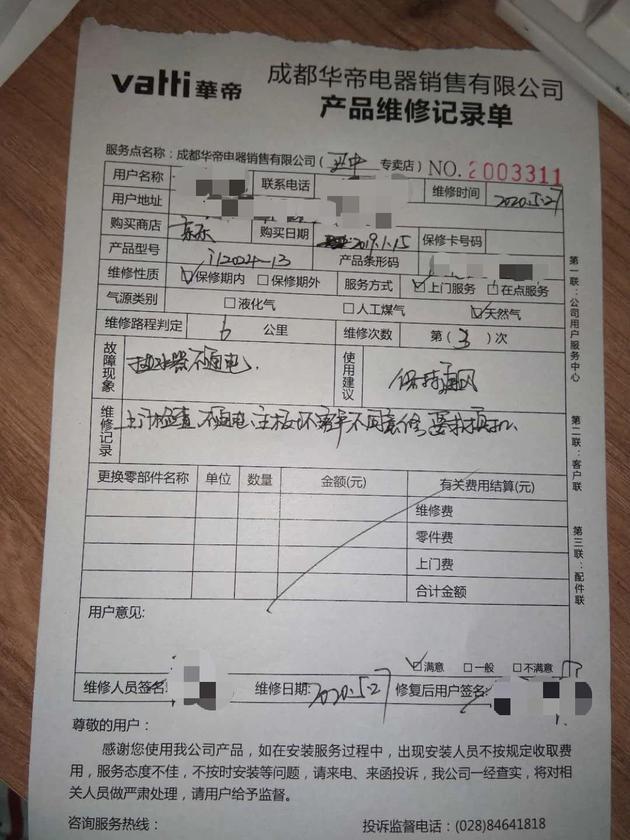 vatti 華帝
成都华帝电器销售有限公司
产品维修记录单
服务点名称：成都华帝电器销售有限公司（ 专卖店） NO. 2003311
用户名称 联系电话 维修时间 2020.5.27
用户地址
购买商店 京东 购买日期 2019.1.15 保修卡号码
产品型号 i12024-13 产品条形码
维修性质 ☑保修期内 □保修期外 服务方式 ☑上门服务 □在点服务
气源类别 □液化气 □人工煤气 ☑天然气
维修路程判定 6 公里 维修次数 第（3）次
故障现象 热水器不通电. 使用建议 保持通风
维修记录 上门检查,不通电,主板坏,客户不同意修,要求换机.
更换零部件名称 单位 数量 金额(元) 有关费用结算(元)
维修费
零件费
上门费
合计金额
用户意见:
☑满意 □一般 □不满意
维修人员签名: 维修日期: 2020.5.27 修复后用户签名:
尊敬的用户：
感谢您使用我公司产品，如在安装服务过程中，出现安装人员不按规定收取费
用，服务态度不佳，不按时安装等问题，请来电、来函投诉，我公司一经查实，将对
相关人员做严肃处理，请用户给予监督。
咨询服务热线： 投诉监督电话：(028)84641818
第一联：公司用户服务中心
第二联：客户联
第三联：配件联